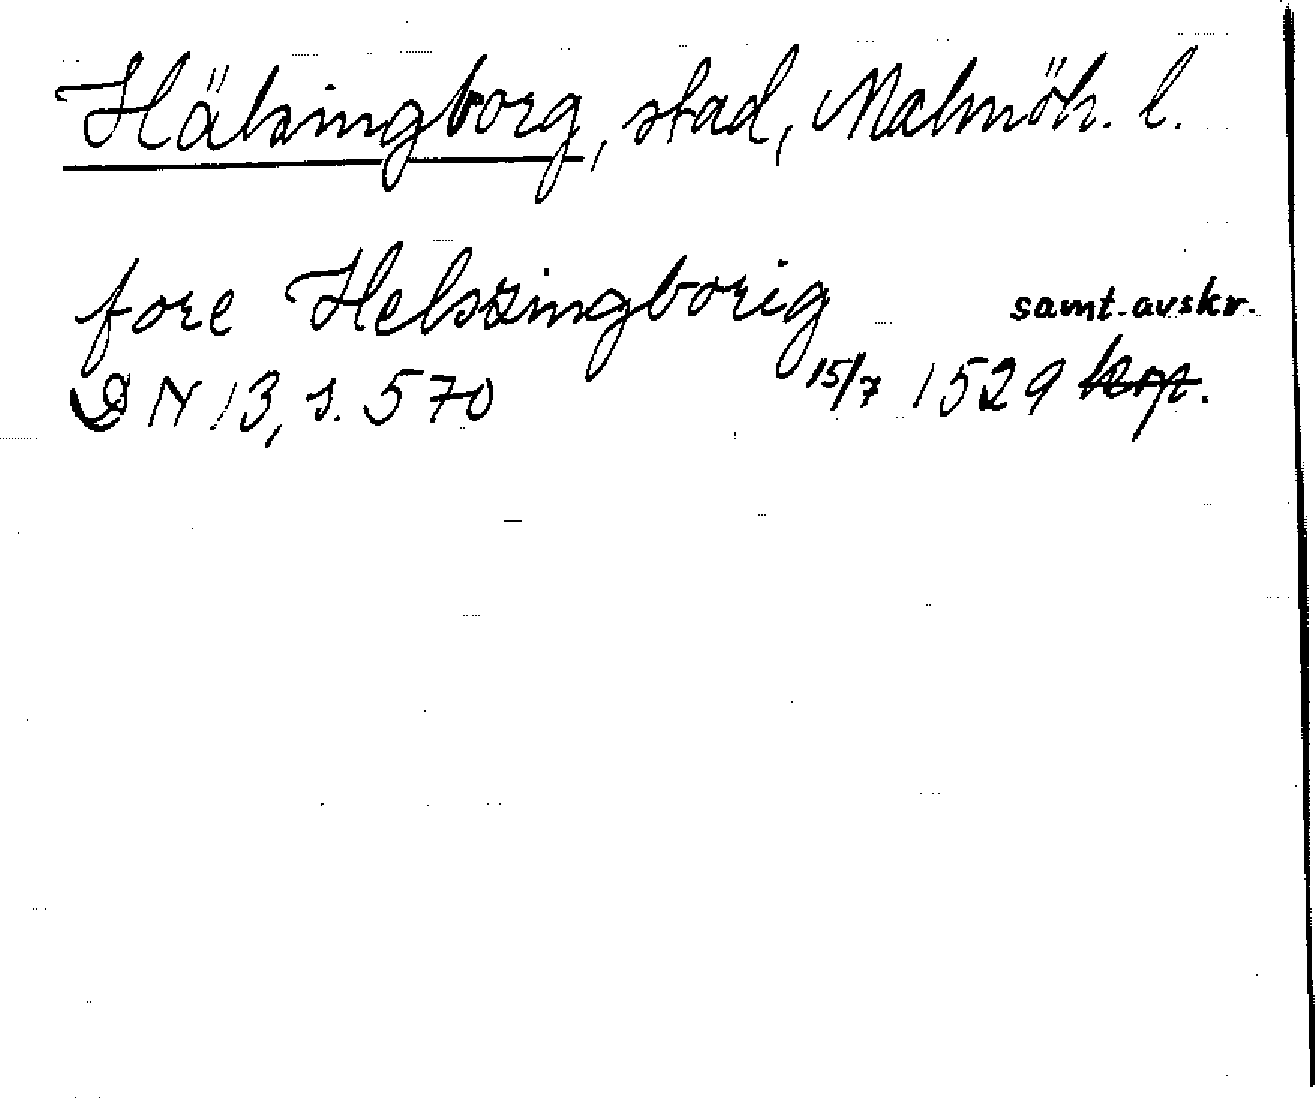 Hälsingborg, stad, Malmöh. l.
fore Helszingborig samt. avskr.
DN 13, s. 570 15/7 1529 kop.